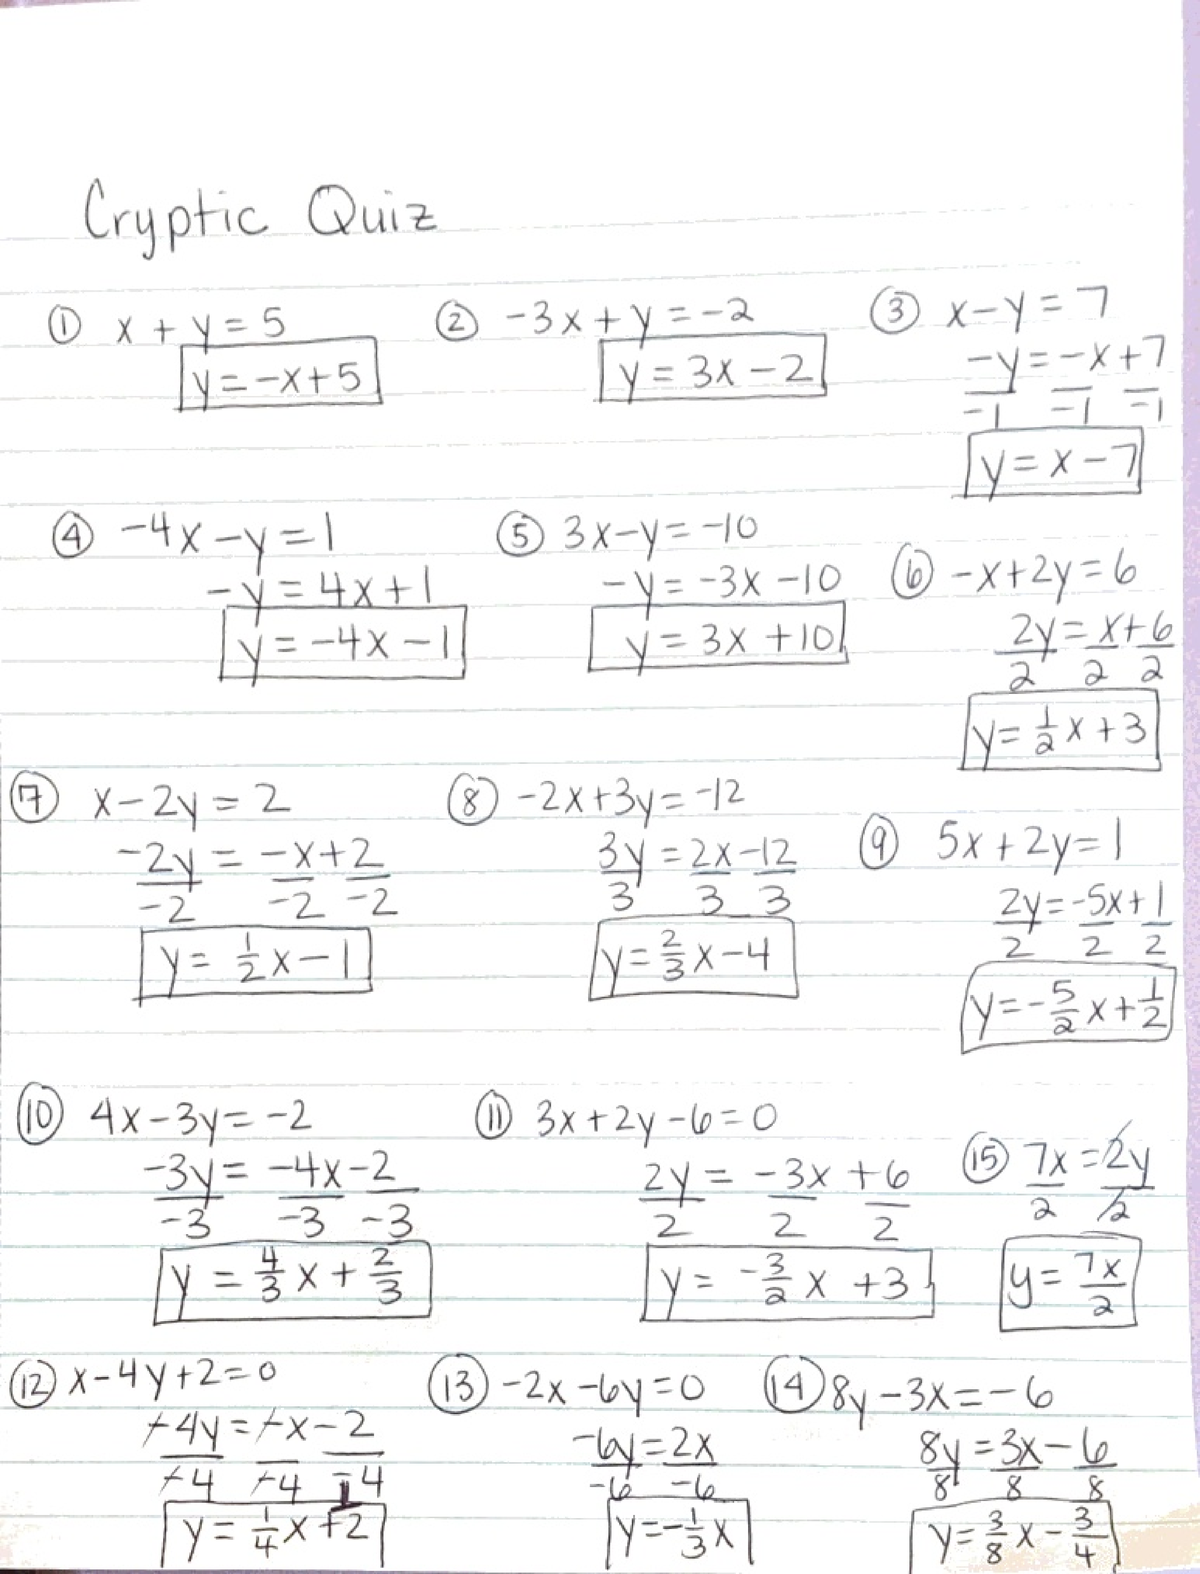 Cryptic Quiz
① x + y = 5
y = -x+5
② -3x + y = -2
y = 3x - 2
③ x - y = 7
-y = -x + 7
-1 -1 -1
y = x - 7
④ -4x - y = 1
-y = 4x + 1
y = -4x - 1
⑤ 3x - y = -10
-y = -3x - 10
y = 3x + 10
⑥ -x + 2y = 6
2y = x + 6
2 2 2
y = 1/2 x + 3
⑦ x - 2y = 2
-2y = -x + 2
-2 -2 -2
y = 1/2 x - 1
⑧ -2x + 3y = -12
3y = 2x - 12
3 3 3
y = 2/3 x - 4
⑨ 5x + 2y = 1
2y = -5x + 1
2 2 2
y = -5/2 x + 1/2
⑩ 4x - 3y = -2
-3y = -4x - 2
-3 -3 -3
y = 4/3 x + 2/3
⑪ 3x + 2y - 6 = 0
2y = -3x + 6
2 2 2
y = -3/2 x + 3
⑮ 7x = 2y
2 2
y = 7x/2
⑫ x - 4y + 2 = 0
-4y = -x - 2
-4 -4 -4
⑬ -2x - 6y = 0
-6y = 2x
-6 -6
y = -1/3 x
⑭ 8y - 3x = -6
8y = 3x - 6
8 8 8
y = 3/8 x - 3/4